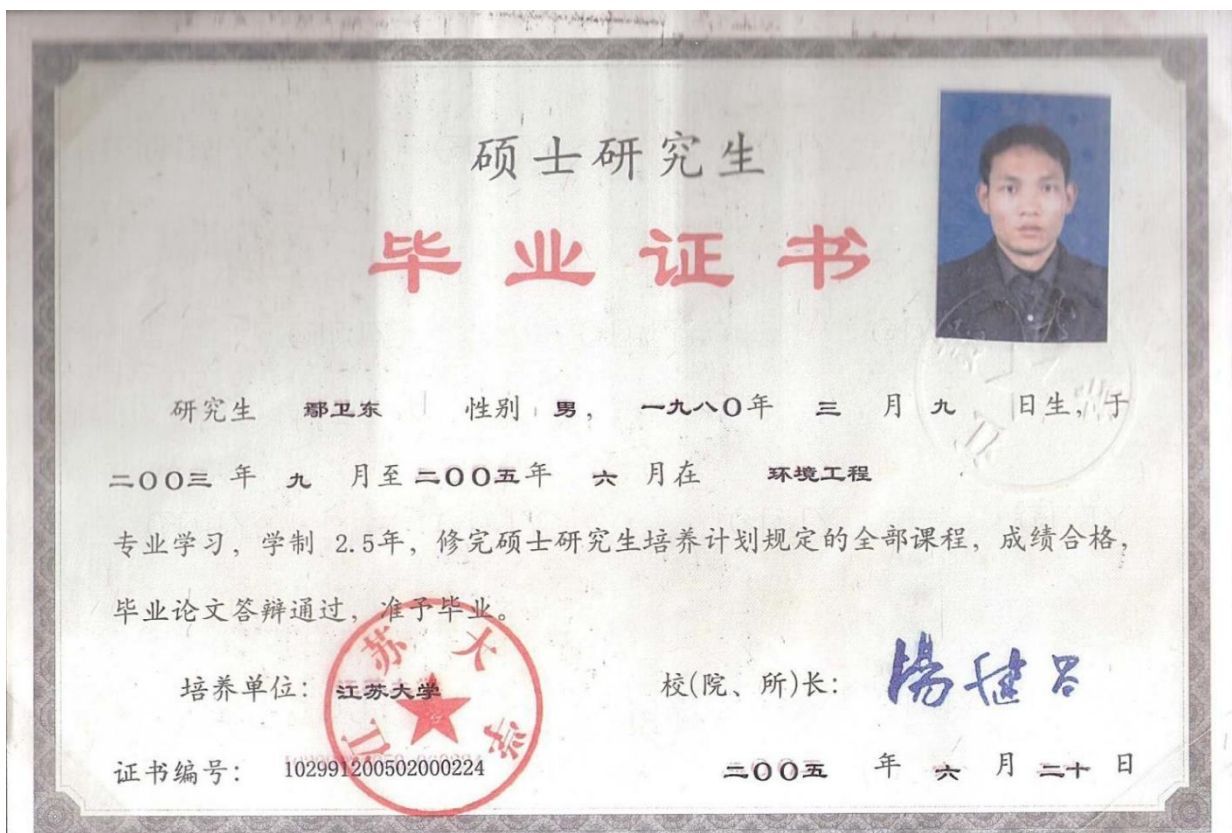 硕士研究生
毕业证书
研究生 鄢卫东 性别 男， 一九八〇年 三 月 九 日生，于
二〇〇三 年 九 月至 二〇〇五年 六 月在 环境工程
专业学习，学制 2.5年，修完硕士研究生培养计划规定的全部课程，成绩合格，
毕业论文答辩通过，准予毕业。
江苏大学
培养单位： 江苏大学 校(院、所)长：
证书编号： 102991200502000224 二〇〇五 年 六 月 二十 日